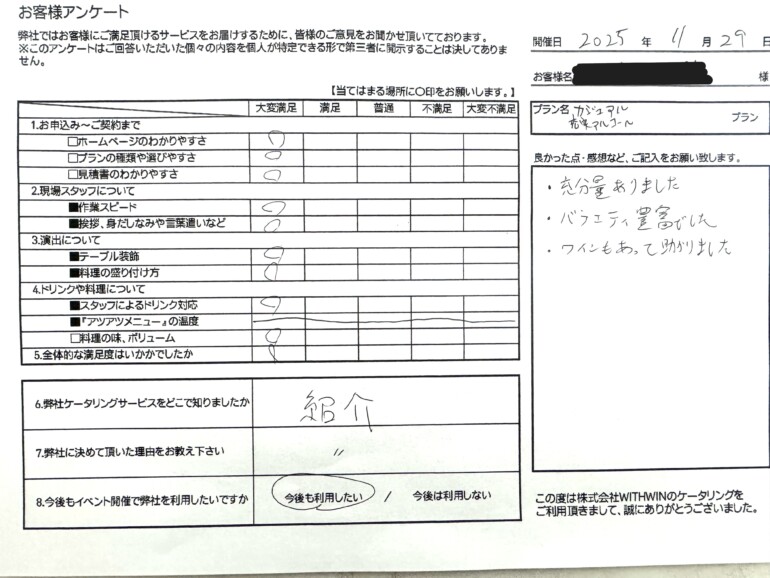 お客様アンケート
弊社ではお客様にご満足頂けるサービスをお届けするために、皆様のご意見をお聞かせ頂いております。
※このアンケートはご回答いただいた個々の内容を個人が特定できる形で第三者に開示することは決してありま
せん。
開催日 2025 年 11 月 29 日
お客様名 様
【当てはまる場所に〇印をお願いします。】
大変満足 満足 普通 不満足 大変不満足
1.お申込み～ご契約まで
□ホームページのわかりやすさ
□プランの種類や選びやすさ
□見積書のわかりやすさ
2.現場スタッフについて
■作業スピード
■挨拶、身だしなみや言葉遣いなど
3.演出について
■テーブル装飾
■料理の盛り付け方
4.ドリンクや料理について
■スタッフによるドリンク対応
■『アツアツメニュー』の温度
□料理の味、ボリューム
5.全体的な満足度はいかがでしたか
6.弊社ケータリングサービスをどこで知りましたか 紹介
7.弊社に決めて頂いた理由をお教え下さい 〃
8.今後もイベント開催で弊社を利用したいですか 今後も利用したい / 今後は利用しない
プラン名 カジュアル
アルコール プラン
良かった点・感想など、ご記入をお願い致します。
・充分量ありました
・バラエティ豊富でした
・ワインもあって助かりました
この度は株式会社WITHWINのケータリングを
ご利用頂きまして、誠にありがとうございました。